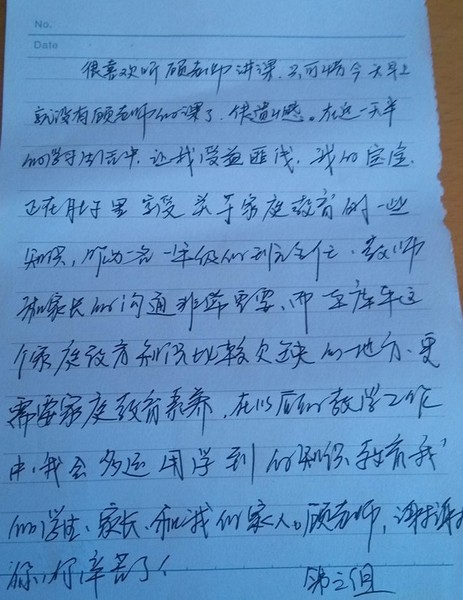 No.
Date
很喜欢听顾老师讲课,只可惜今天早上
就没有顾老师的课了,很遗憾。在这一天半
的学习生活中,让我受益匪浅,我的宝宝
正在肚子里享受关于家庭教育的一些
知识,作为一名一年级的班主任,教师
和家长的沟通非常重要,而在库车这
个家庭教育知识比较欠缺的地方,更
需要家庭教育素养,在以后的教学工作
中,我会多运用学到的知识教育我
的学生、家长、和我的家人。顾老师,谢谢
你,你辛苦了!
第三组